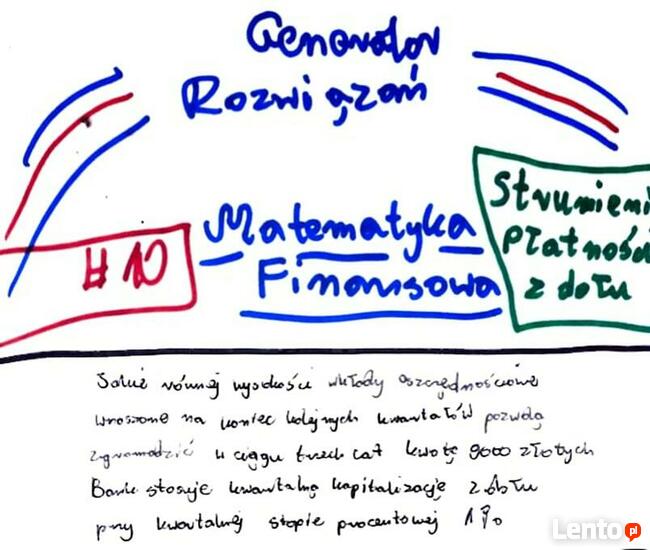 Generator
Rozwiązań
# 10
Matematyka
Finansowa
Strumienie
Płatności
z dołu
równej wysokości wkłady oszczędnościowe
wnoszone na koniec kolejnych kwartałów pozwolą
zgromadzić w ciągu trzech lat kwotę 9000 złotych
Bank stosuje kwartalną kapitalizację z dołu
przy kwartalnej stopie procentowej 1%
Lento.pl